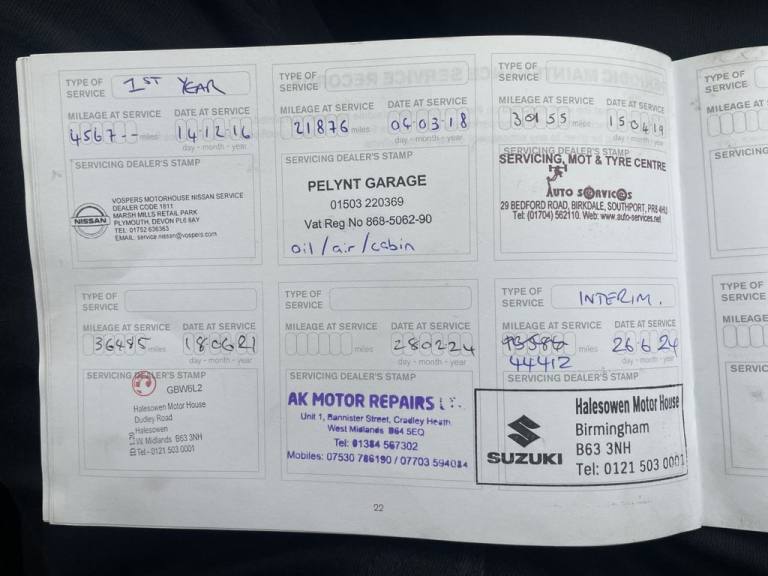 TYPE OF SERVICE 1ST YEAR
MILEAGE AT SERVICE DATE AT SERVICE
4567-- miles 14 12 16
day - month - year
SERVICING DEALER'S STAMP
NISSAN
VOSPERS MOTORHOUSE NISSAN SERVICE
DEALER CODE 1811
MARSH MILLS RETAIL PARK
PLYMOUTH, DEVON PL6 8AY
TEL: 01752 636363
EMAIL: service.nissan@vospers.com
TYPE OF SERVICE
MILEAGE AT SERVICE DATE AT SERVICE
21876 miles 06 03 18
day - month - year
SERVICING DEALER'S STAMP
PELYNT GARAGE
01503 220369
Vat Reg No 868-5062-90
oil/air/cabin
TYPE OF SERVICE
MILEAGE AT SERVICE DATE AT SERVICE
30155 miles 15 04 19
day - month - year
SERVICING DEALER'S STAMP
SERVICING, MOT & TYRE CENTRE
AUTO SERVICES
29 BEDFORD ROAD, BIRKDALE, SOUTHPORT, PR8 4HU
Tel: (01704) 562110. Web: www.auto-services.net
TYPE OF SERVICE
MILEAGE AT SERVICE DATE AT SERVICE
36485 miles 18 06 21
day - month - year
SERVICING DEALER'S STAMP
GBW6L2
Halesowen Motor House
Dudley Road
Halesowen
W. Midlands B63 3NH
Tel - 0121 503 0001
TYPE OF SERVICE
MILEAGE AT SERVICE DATE AT SERVICE
miles 28 02 24
day - month - year
SERVICING DEALER'S STAMP
AK MOTOR REPAIRS
Unit 1, Bannister Street, Cradley Heath
West Midlands B64 5EQ
Tel: 01384 567302
Mobiles: 07530 786190 / 07703 594084
TYPE OF SERVICE INTERIM.
MILEAGE AT SERVICE DATE AT SERVICE
miles 26 6 24
44412 day - month - year
SERVICING DEALER'S STAMP
SUZUKI
Halesowen Motor House
Birmingham
B63 3NH
Tel: 0121 503 0001
22
TYPE OF SERVICE
MILEAGE AT S
SERVICING
TYPE OF SERVICE
MILEAGE
SERVIC